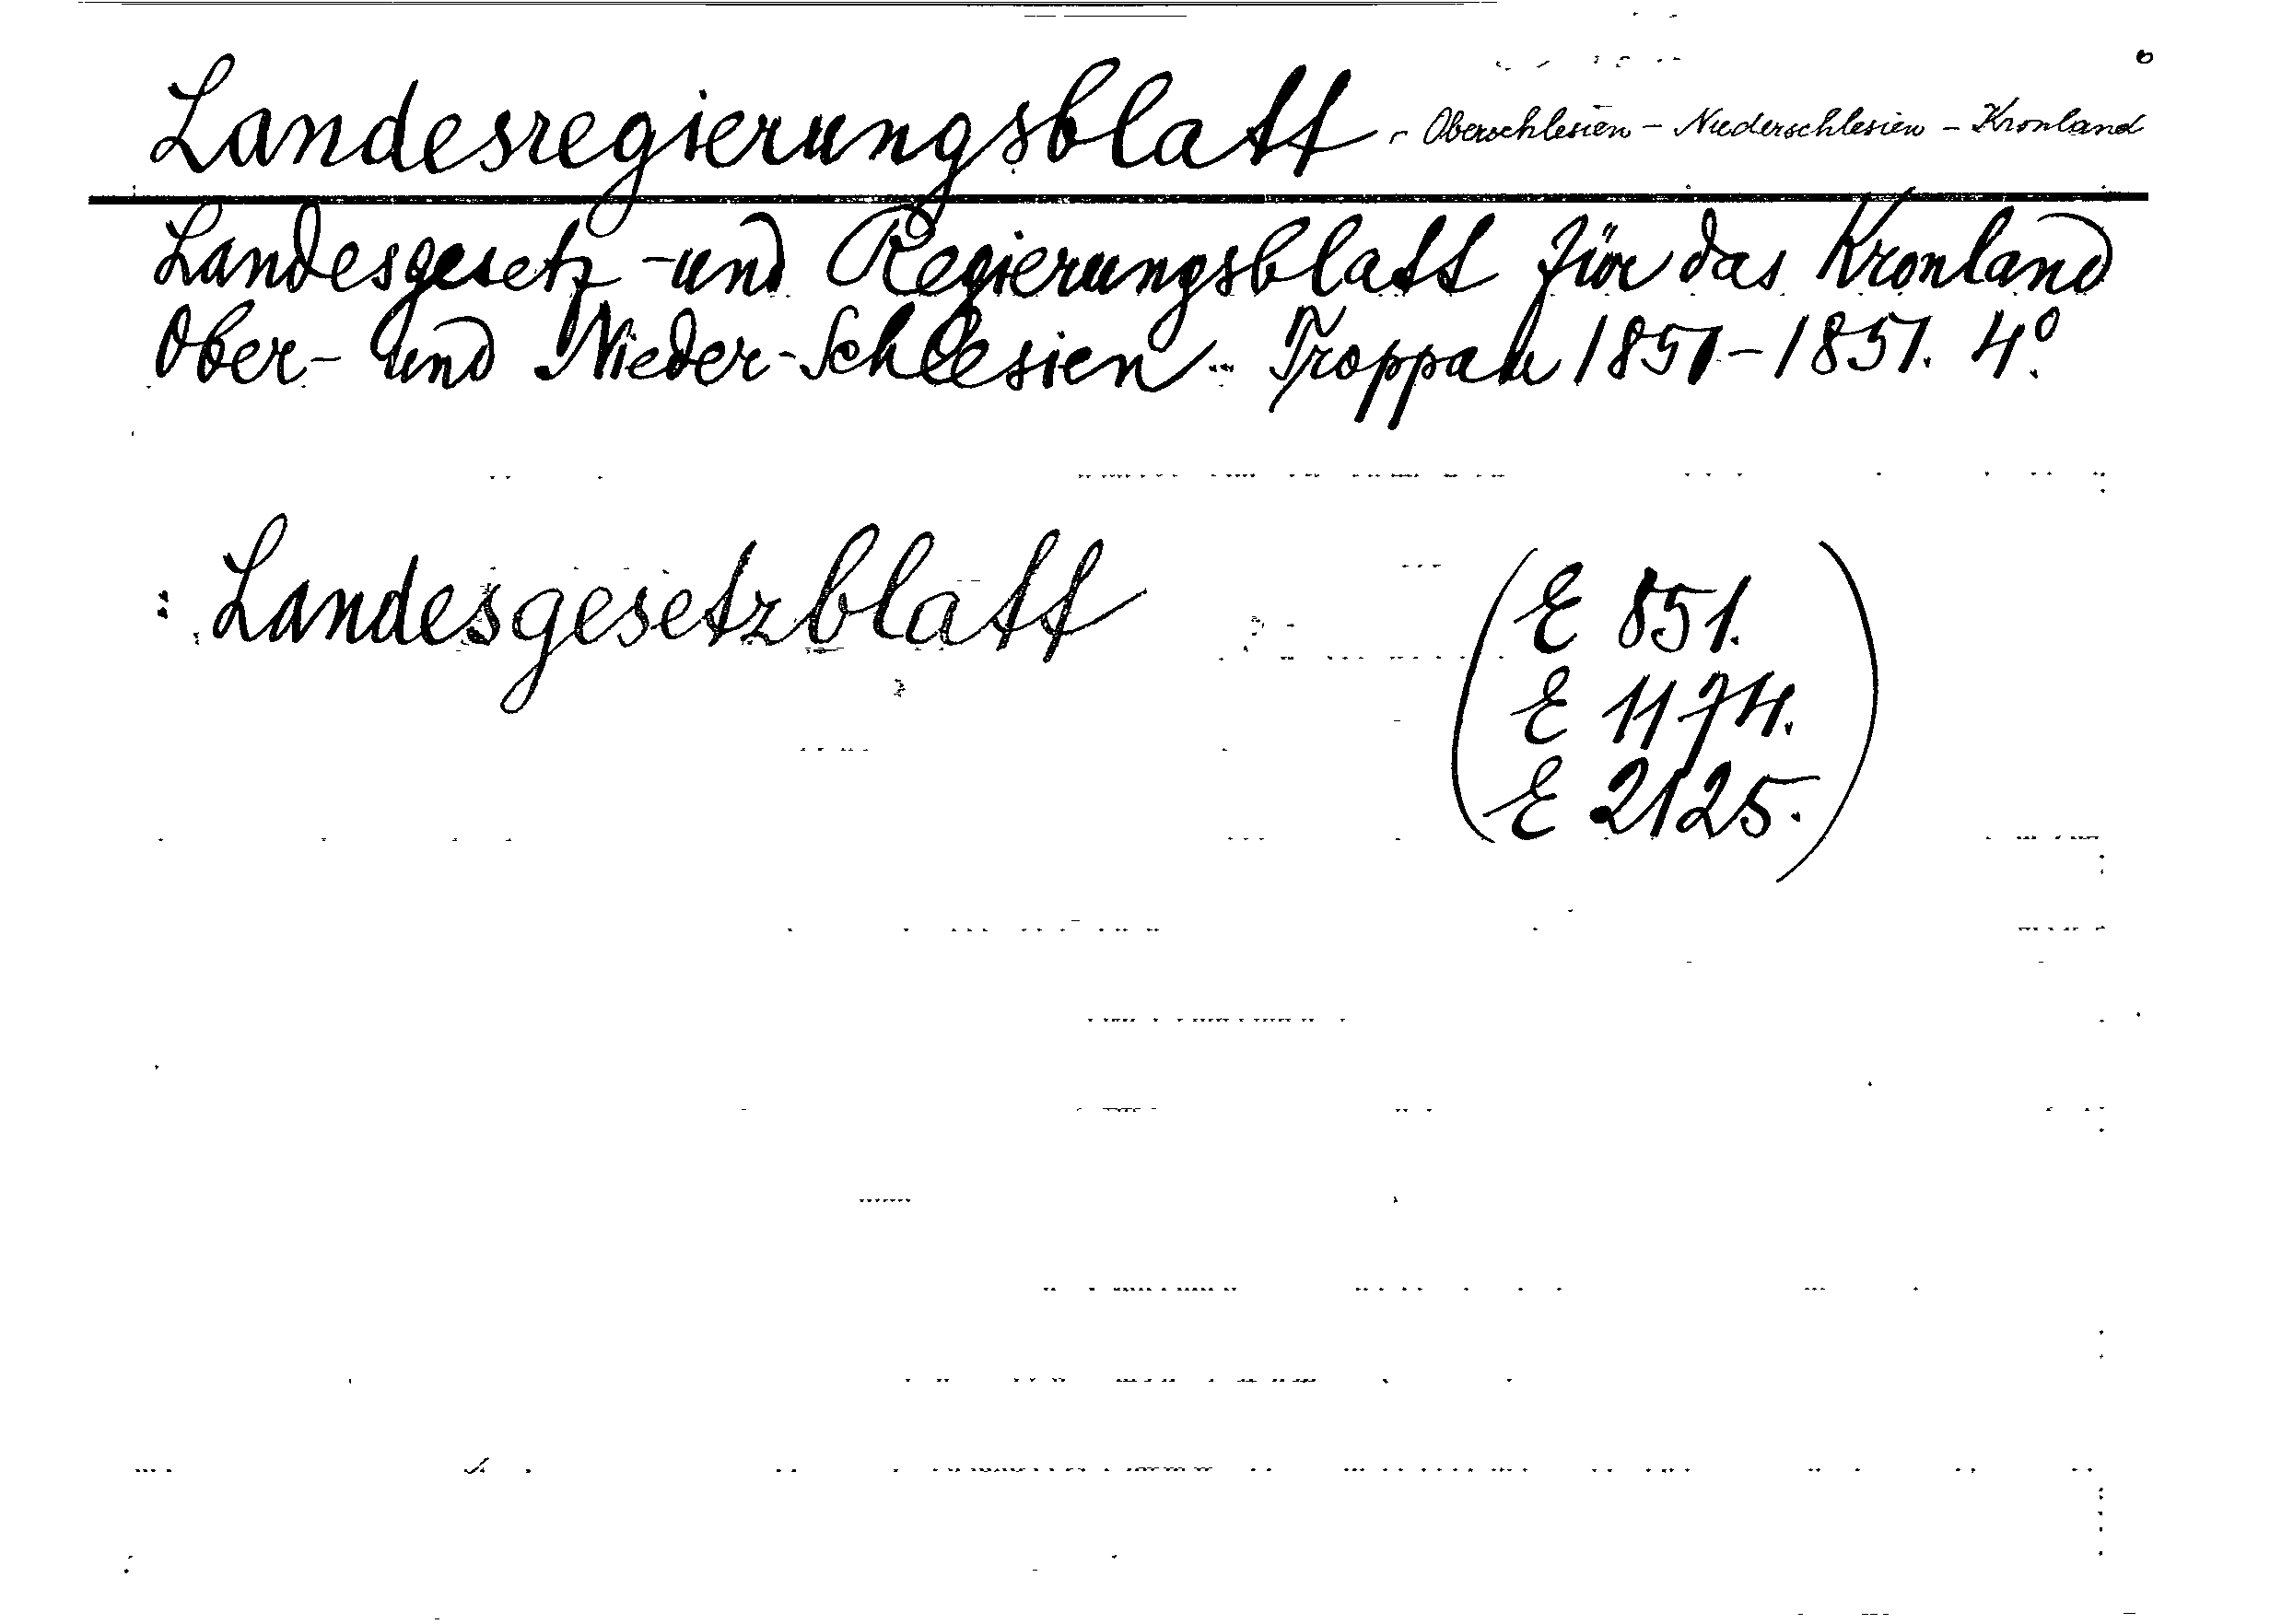 Landesregierungsblatt - Oberschlesien - Niederschlesien - Kronland
Landesgesetz- und Regierungsblatt für das Kronland
Ober- und Nieder-Schlesien. Troppau 1851-1851. 4º.
: Landesgesetzblatt
(E 851.
E 1174.
E 2125.)